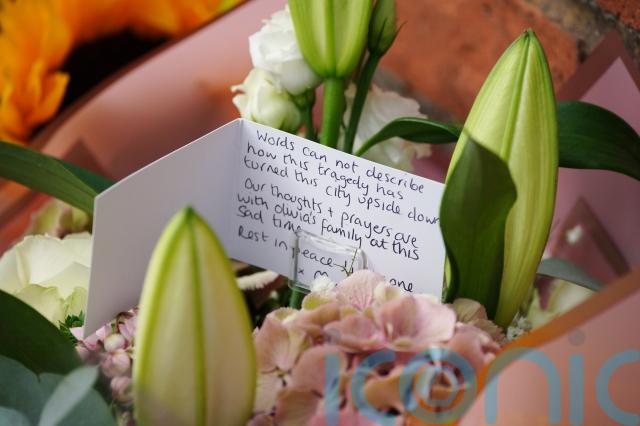 Words can not describe
how this tragedy has
turned this city upside down
Our thoughts + prayers are
with olivia's family at this
Sad time
Rest in peace
x
one
iconic